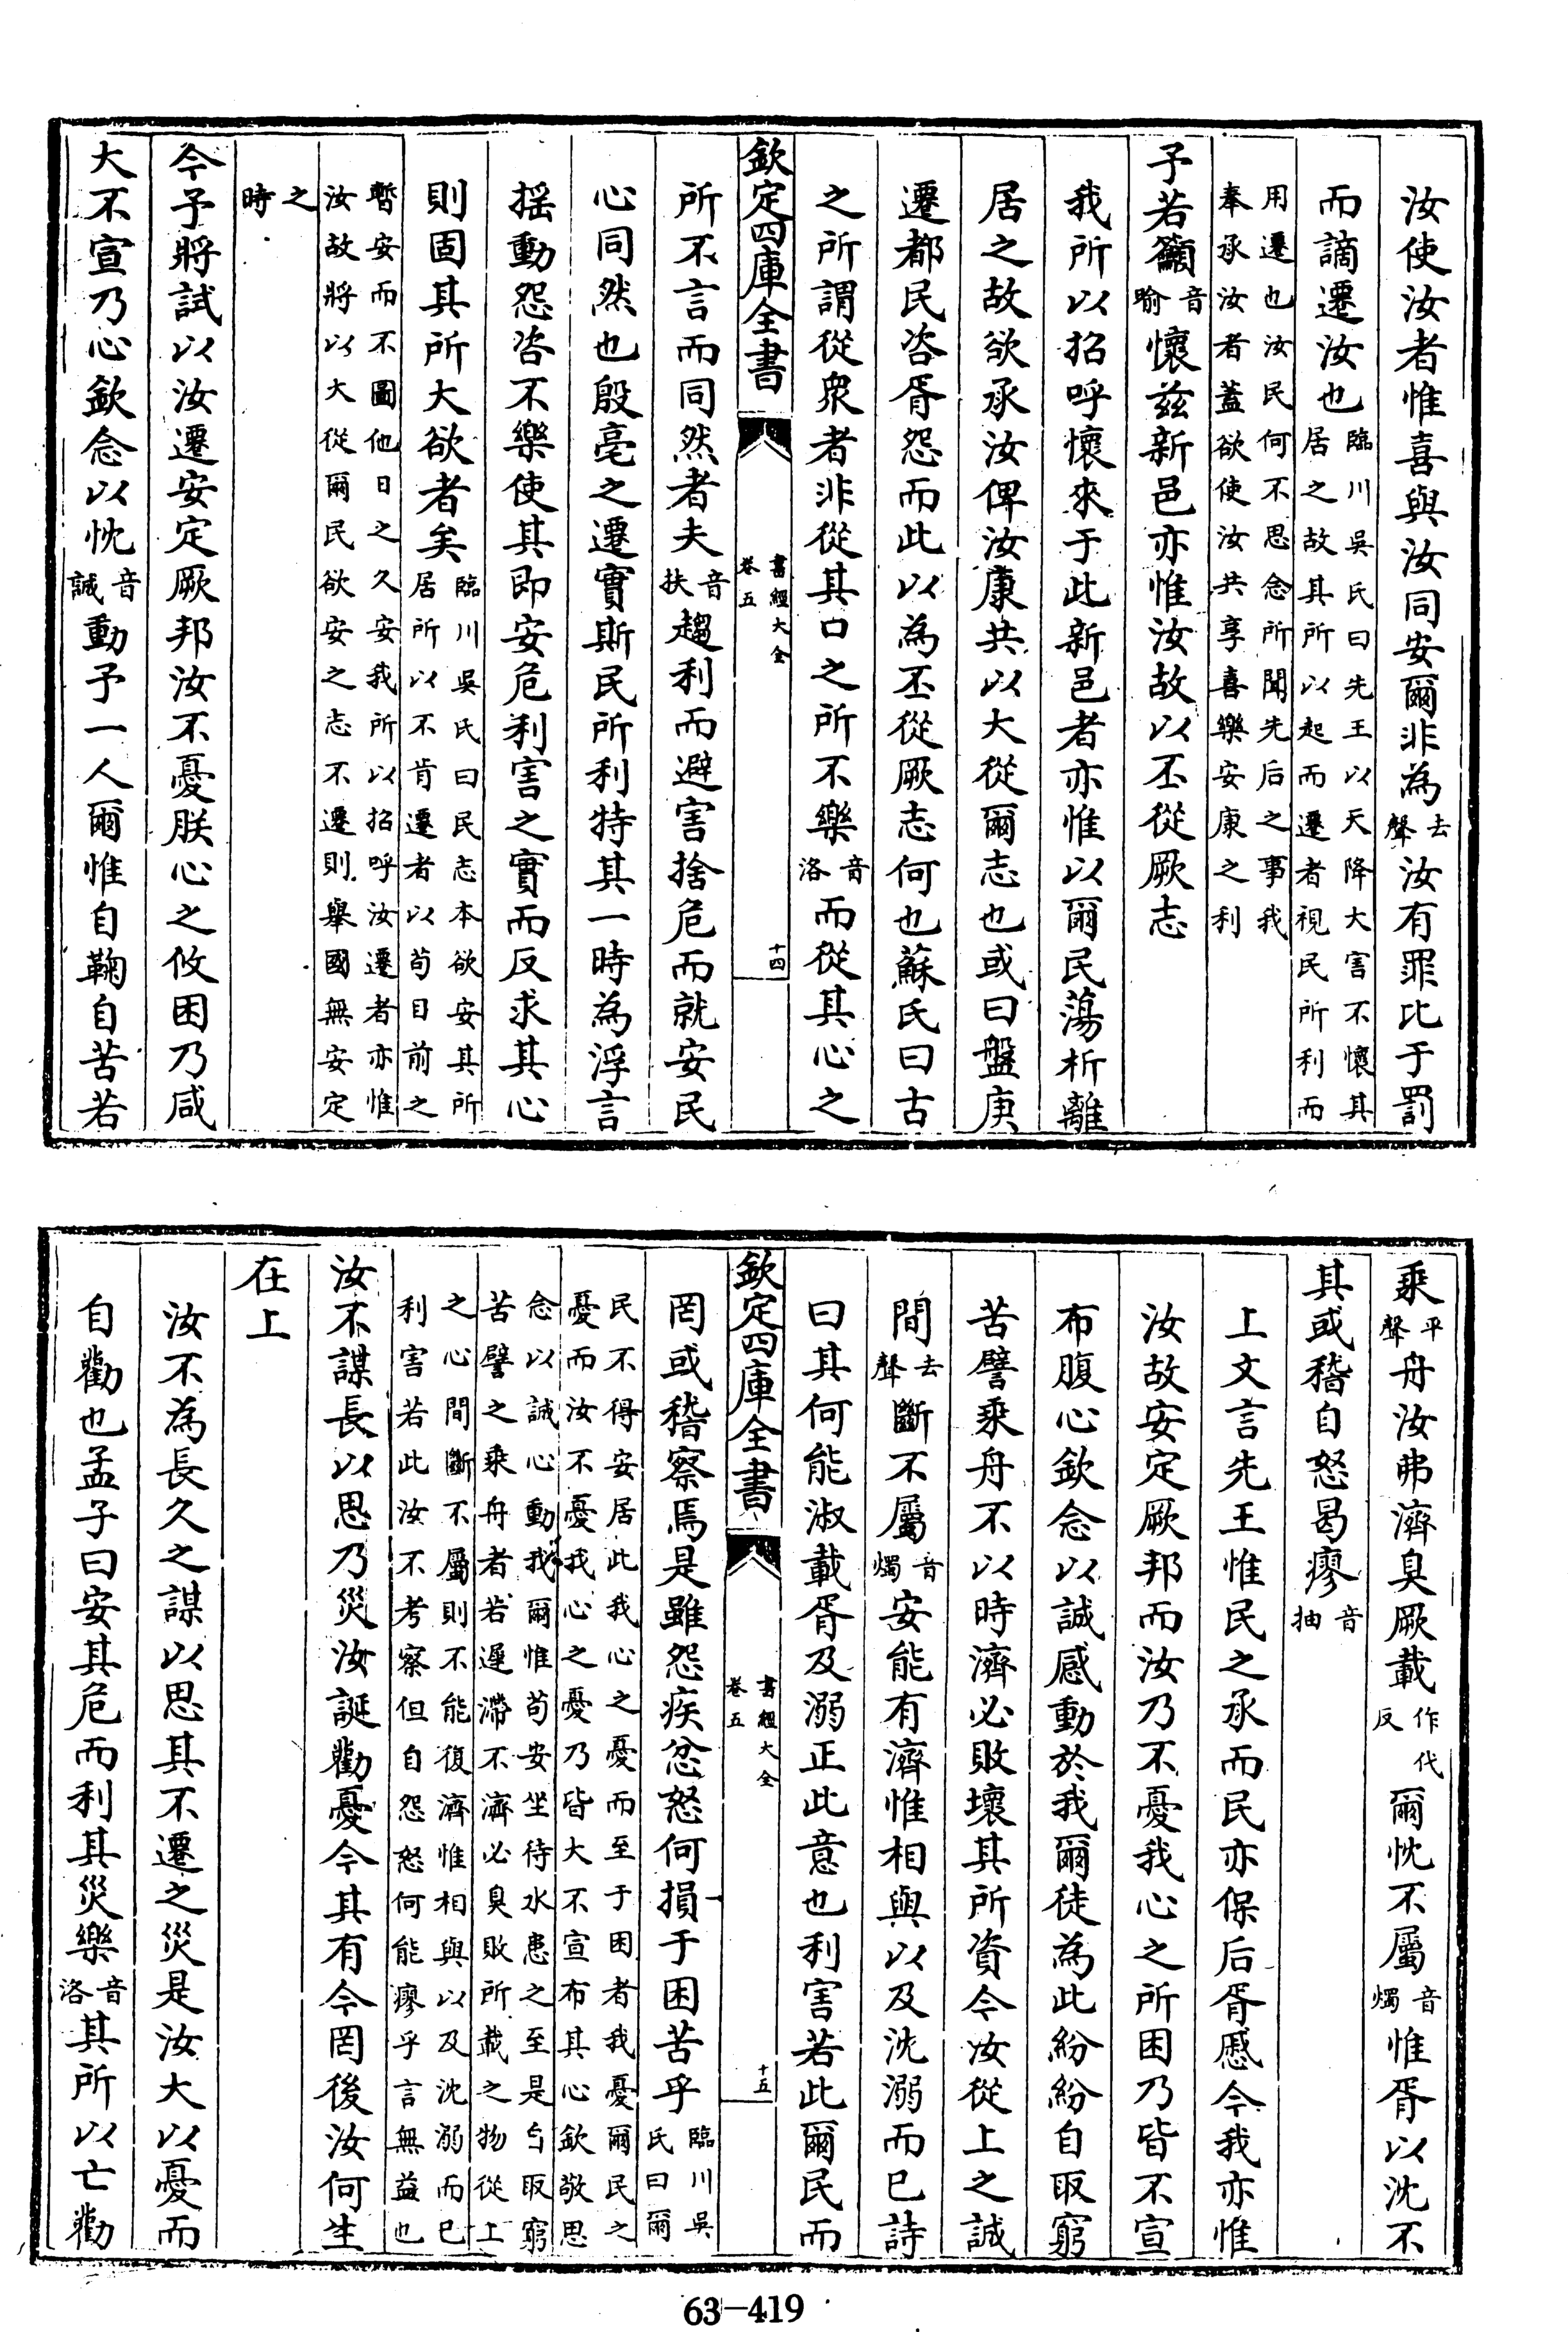 汝使汝者惟喜與汝同安爾非為去聲汝有罪比于罰
而謫遷汝也臨川吳氏曰先王以天降大害不懷其居之故其所以起而遷者視民所利而
用遷也汝民何不思念所聞先后之事我奉承汝者蓋欲使汝共享喜樂安康之利
予若籲音喻懷兹新邑亦惟汝故以丕從厥志
我所以招呼懷來于此新邑者亦惟以爾民蕩析離
居之故欲承汝俾汝康共以大從爾志也或曰盤庚
遷都民咨胥怨而此以為丕從厥志何也蘇氏曰古
之所謂從衆者非從其口之所不樂音洛而從其心之
欽定四庫全書 書經大全卷五 十四
所不言而同然者夫音扶趨利而避害捨危而就安民
心同然也殷亳之遷實斯民所利特其一時為浮言
揺動怨咨不樂使其即安危利害之實而反求其心
則固其所大欲者矣臨川吳氏曰民志本欲安其所居所以不肯遷者以苟目前之
暫安而不圖他日之久安我所以招呼汝遷者亦惟汝故將以大從爾民欲安之志不遷則舉國無安定
之時
今予將試以汝遷安定厥邦汝不憂朕心之攸困乃咸
大不宣乃心欽念以忱音諴動予一人爾惟自鞠自苦若
乘平聲舟汝弗濟臭厥載作代反爾忱不屬音燭惟胥以沈不
其或稽自怒曷瘳音抽
上文言先王惟民之承而民亦保后胥慼今我亦惟
汝故安定厥邦而汝乃不憂我心之所困乃皆不宣
布腹心欽念以誠感動於我爾徒為此紛紛自取窮
苦譬乘舟不以時濟必敗壞其所資今汝從上之誠
間去聲斷不屬音燭安能有濟惟相與以及沈溺而已詩
曰其何能淑載胥及溺正此意也利害若此爾民而
欽定四庫全書 書經大全卷五 十五
罔或稽察焉是雖怨疾忿怒何損于困苦乎臨川吳氏曰爾
民不得安居此我心之憂而至于困者我憂爾民之憂而汝不憂我心之憂乃皆大不宣布其心欽敬思
念以誠心動我爾惟苟安坐待水患之至是自取窮苦譬之乘舟者若遲滯不濟必臭敗所載之物從上
之心間斷不屬則不能復濟惟相與以及沈溺而已利害若此汝不考察但自怨怒何能瘳乎言無益也
汝不謀長以思乃災汝誕勸憂今其有今罔後汝何生
在上
汝不為長久之謀以思其不遷之災是汝大以憂而
自勸也孟子曰安其危而利其災樂音洛其所以亡勸
63-419